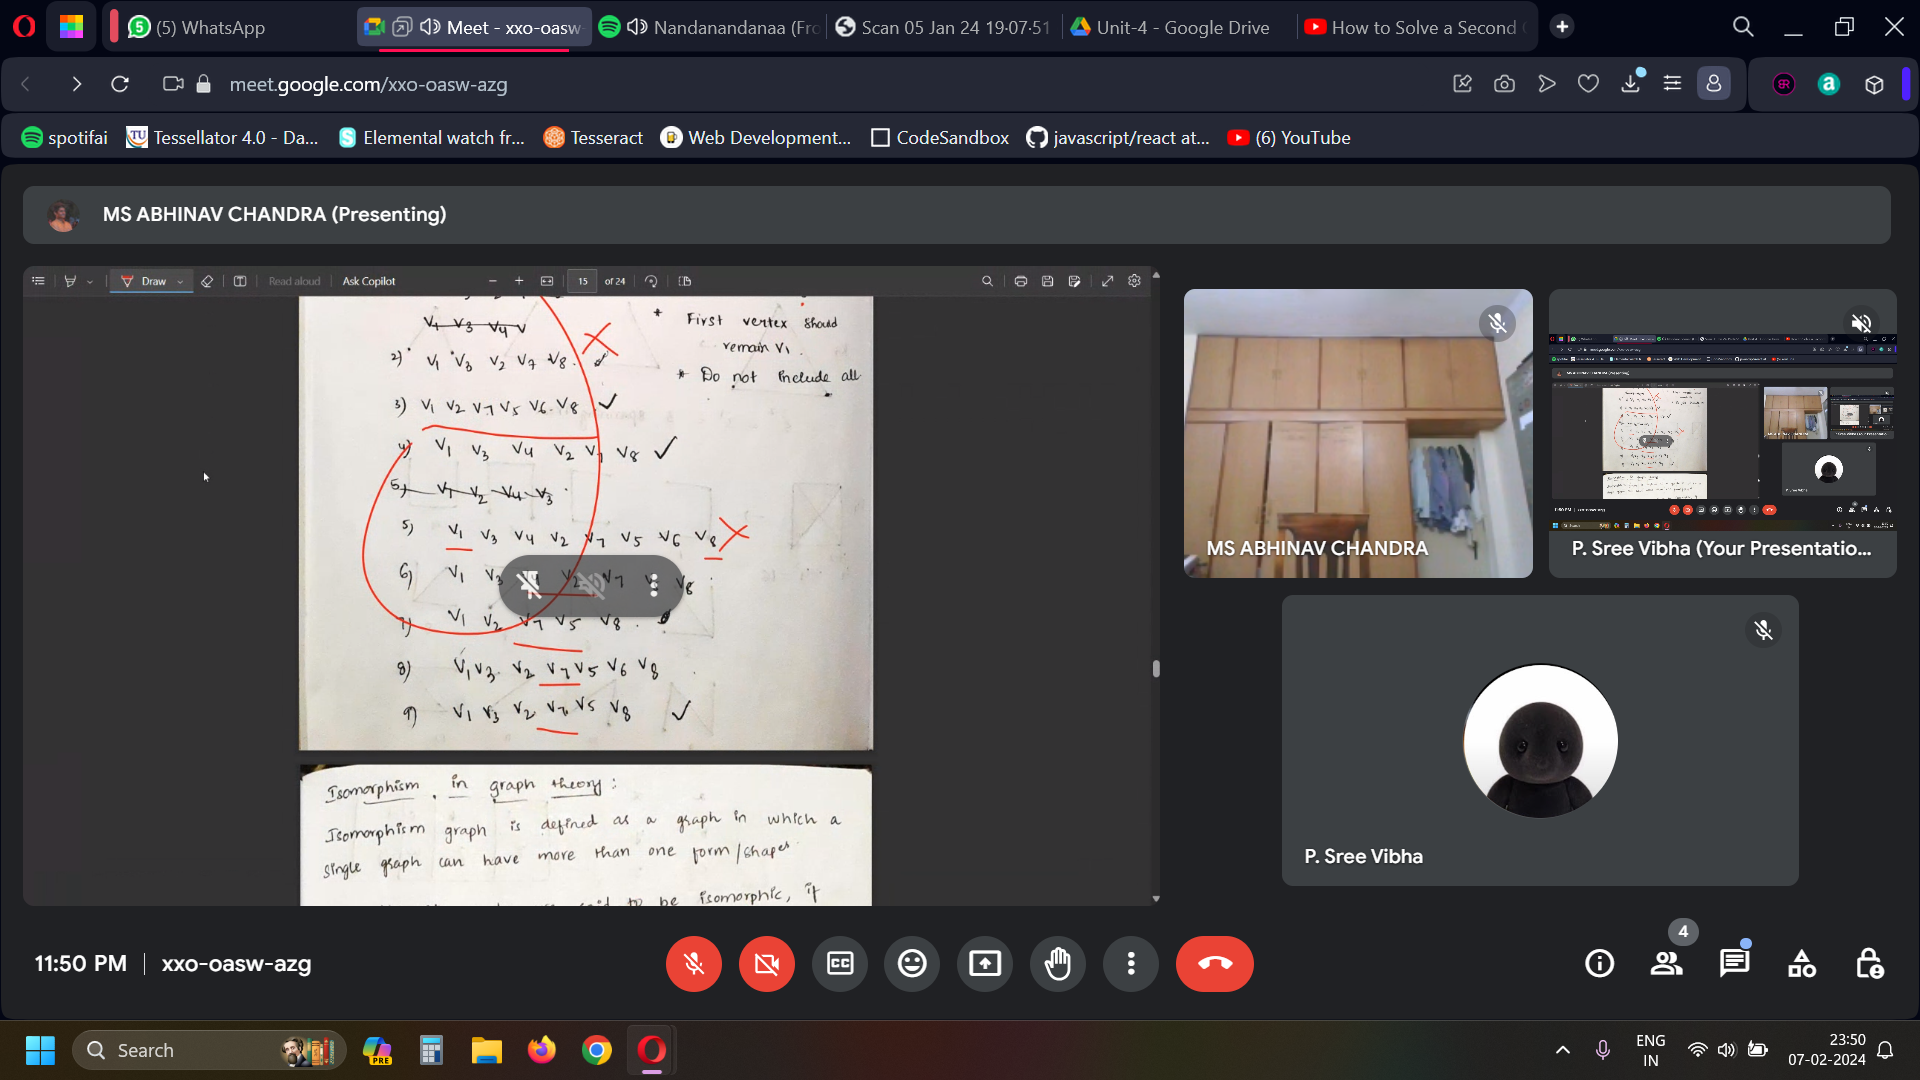 (5) WhatsApp
Meet - xxo-oasw-
Nandanandanaa (Fro
Scan 05 Jan 24 19·07·51
Unit-4 - Google Drive
How to Solve a Second
meet.google.com/xxo-oasw-azg
spotifai
Tessellator 4.0 - Da...
Elemental watch fr...
Tesseract
Web Development...
CodeSandbox
javascript/react at...
(6) YouTube
MS ABHINAV CHANDRA (Presenting)
Draw
Read aloud
Ask Copilot
15
of 24
V1 V3 V4 V
* First vertex should
remain V1
2) V1 V3 V2 V7 V8
* Do not include all
3) V1 V2 V7 V5 V6 V8 ✓
4) V1 V3 V4 V2 V7 V8 ✓
5) V1 V2 V4 V3
5) V1 V3 V4 V2 V7 V5 V6 V8
6) V1 V3 V2 V7 V8
7) V1 V2 V7 V5 V8
8) V1 V3 V2 V7 V5 V6 V8
9) V1 V3 V2 V7 V5 V8 ✓
Isomorphism in graph theory:
Isomorphism graph is defined as a graph in which a
single graph can have more than one form/shapes.
said to be isomorphic, if
MS ABHINAV CHANDRA
P. Sree Vibha (Your Presentatio...
P. Sree Vibha
11:50 PM | xxo-oasw-azg
4
Search
PRE
ENG
IN
23:50
07-02-2024